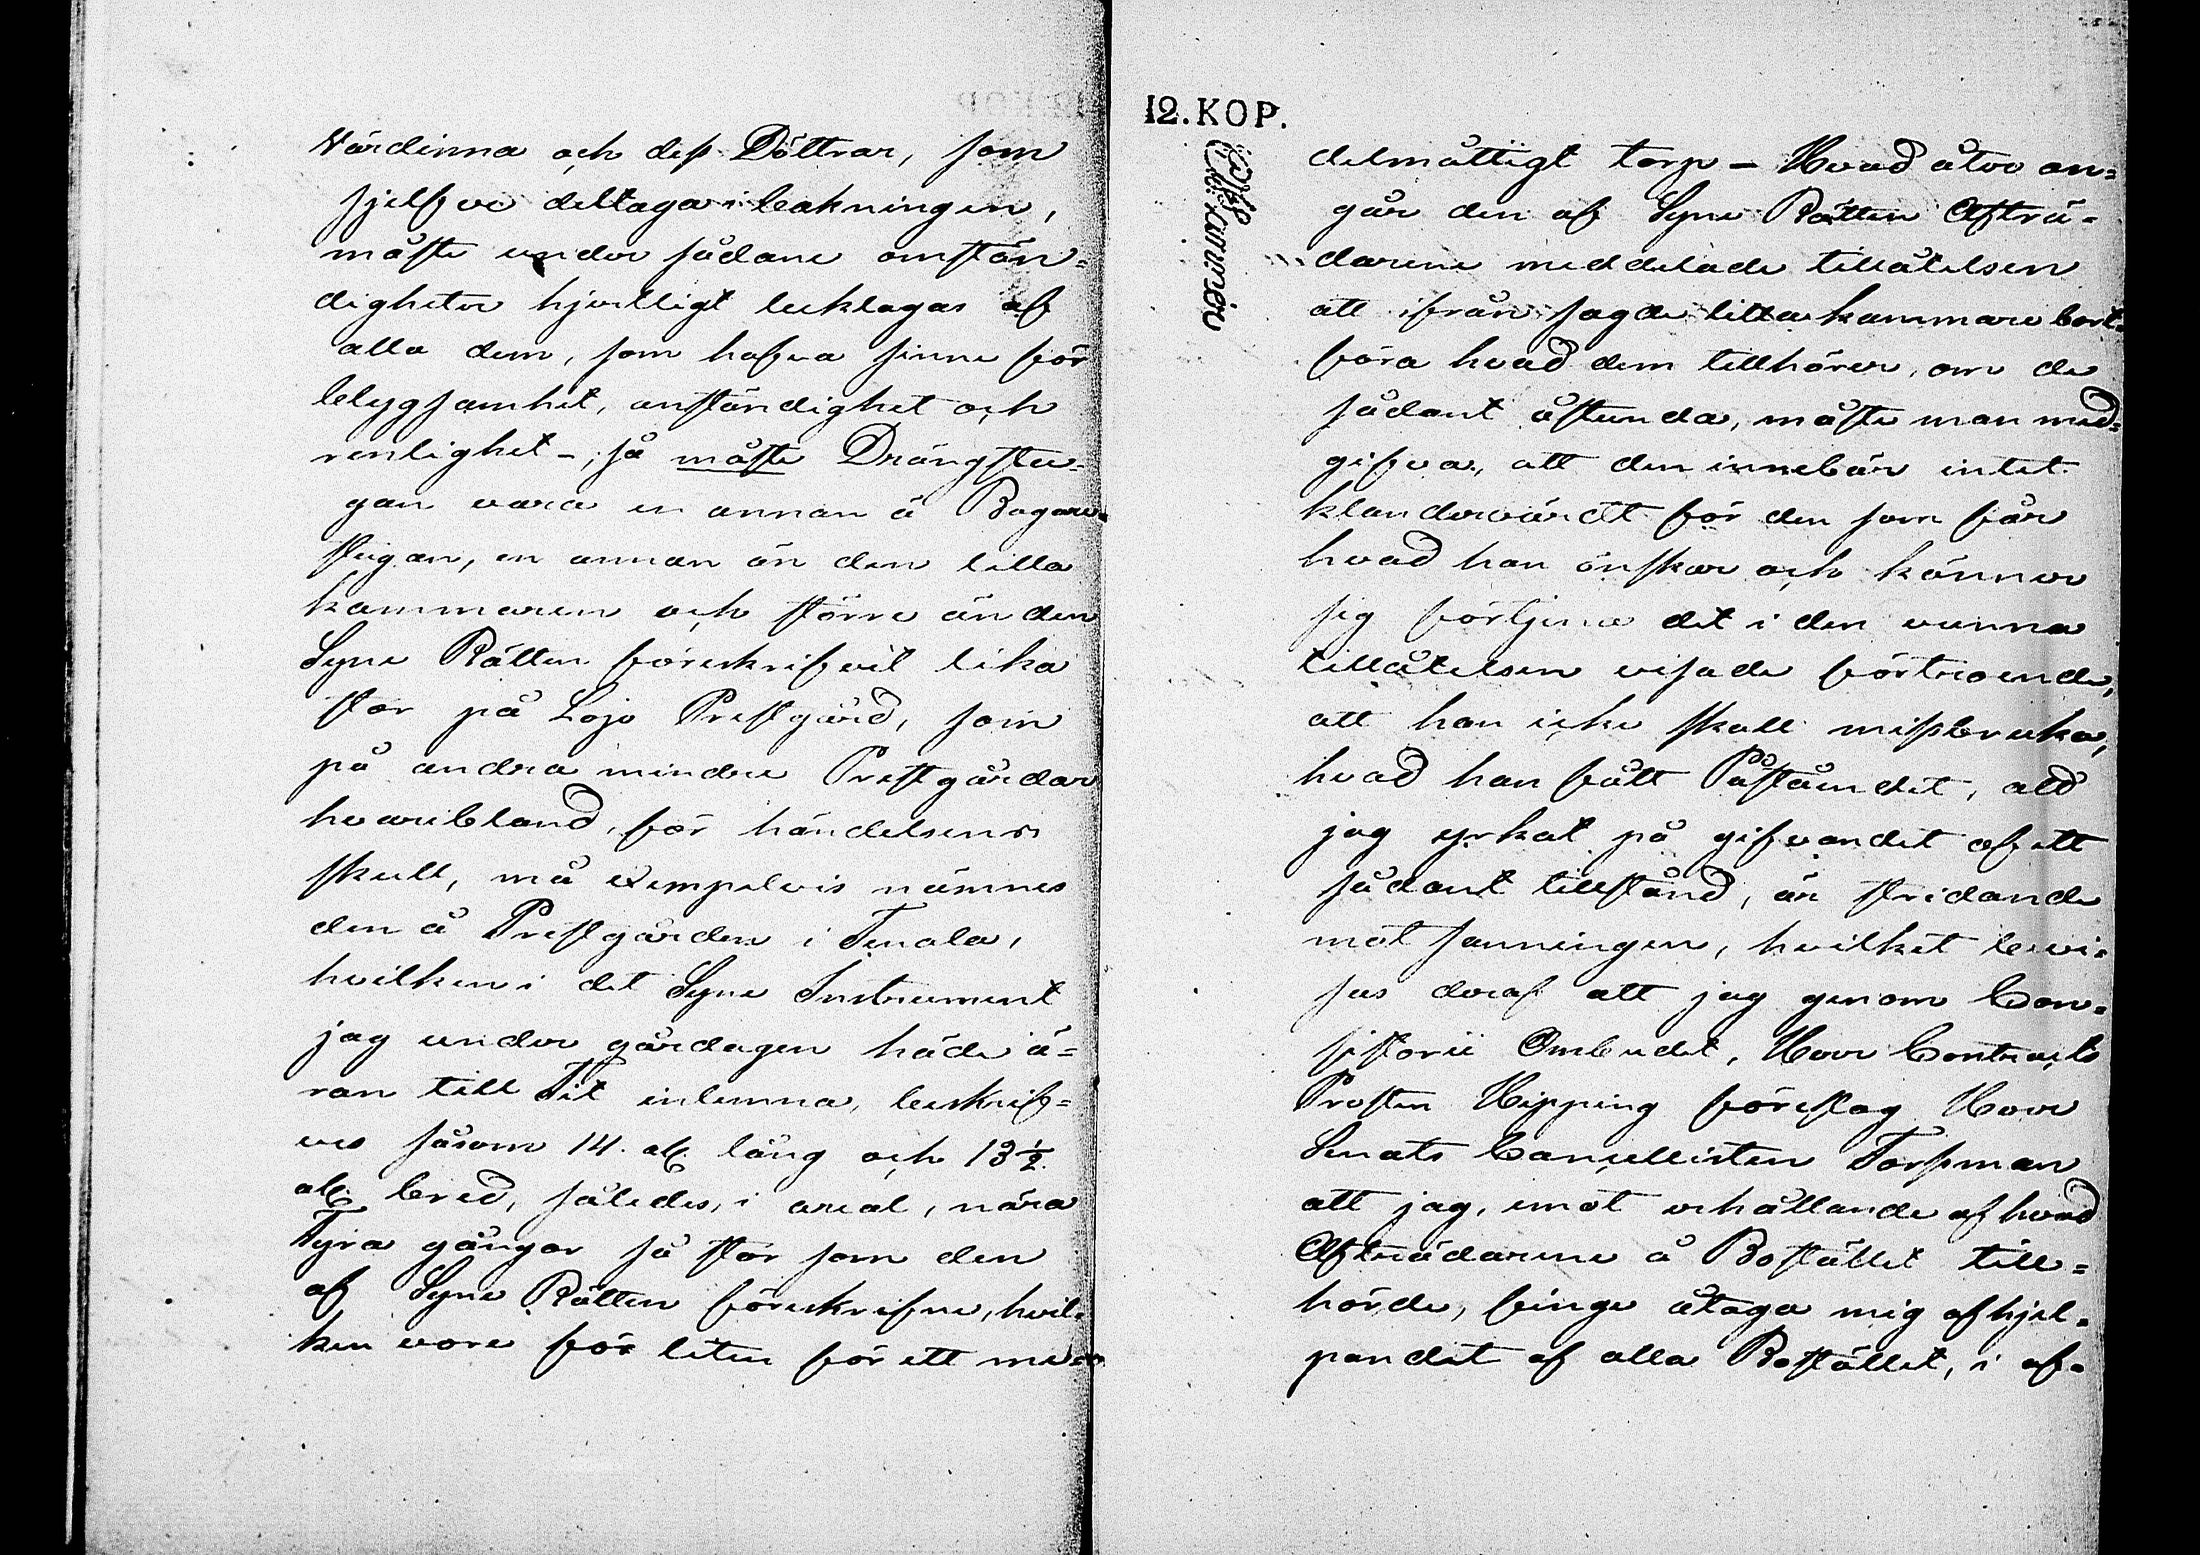 Värdinna och dess Döttrar, som
sjelfve deltaga i bakningen,
måste under sådane omstän=
digheter hjertligt beklagas af
alla dem, som hafva sinne för
blygsamhet, anständighet och
renlighet -, så måste Drängstu-
gan vara en annan ä Bagare
stugan, en annan än den lilla
kammaren och större än den
Syne Rätten föreskrifvit lika
stor på Lojo Prestgård, som
på andra mindre Prestgårdar
hvaribland, för händelsens
skull, må exempelvis nämnes
den å Prestgården i Tenala,
hvilken i det Syne Instrument
jag under gårdagen hade ä=
ran till Tit inlemna, beskrif=
ves såsom 14. al. lång och 13 1/2.
al. bred, således, i areal, nära
Fyra gångor så stor som den
af Syne Rätten föreskrifne, hvil-
ken vore för liten för ett me-
12. KOP.
delmåttigt torp - Hvad åter an=
går den af Syne Rätten Afträ-
darene meddelade tillåtelsen
att ifrån sagde lilla kammare bort-
föra hvad dem tillhörer, om de
sådant åstunda, måste man med=
gifva, att den innebär intet
klandervärdt för den som får
hvad han önskar och känner
sig förtjena det i den vunna
tillåtelsen visade förtroende,
att han icke skall missbruka,
hvad han fått Påståendet, att
jag yrkat på gifvandet af ett
sådant tillstånd, är stridande
mot sanningen, hvilket bevi-
ses deraf att jag genom Con-
sistorii Ombudet, Herr Contracts
Prosten Hipping föreslog Herr
Senats Cancellisten Forsman
att jag, emot erhållande af hvad
Afträdarene å Bostället till=
hörde, finge åtaga mig afhjel-
pandet af alla Bostället, i af-